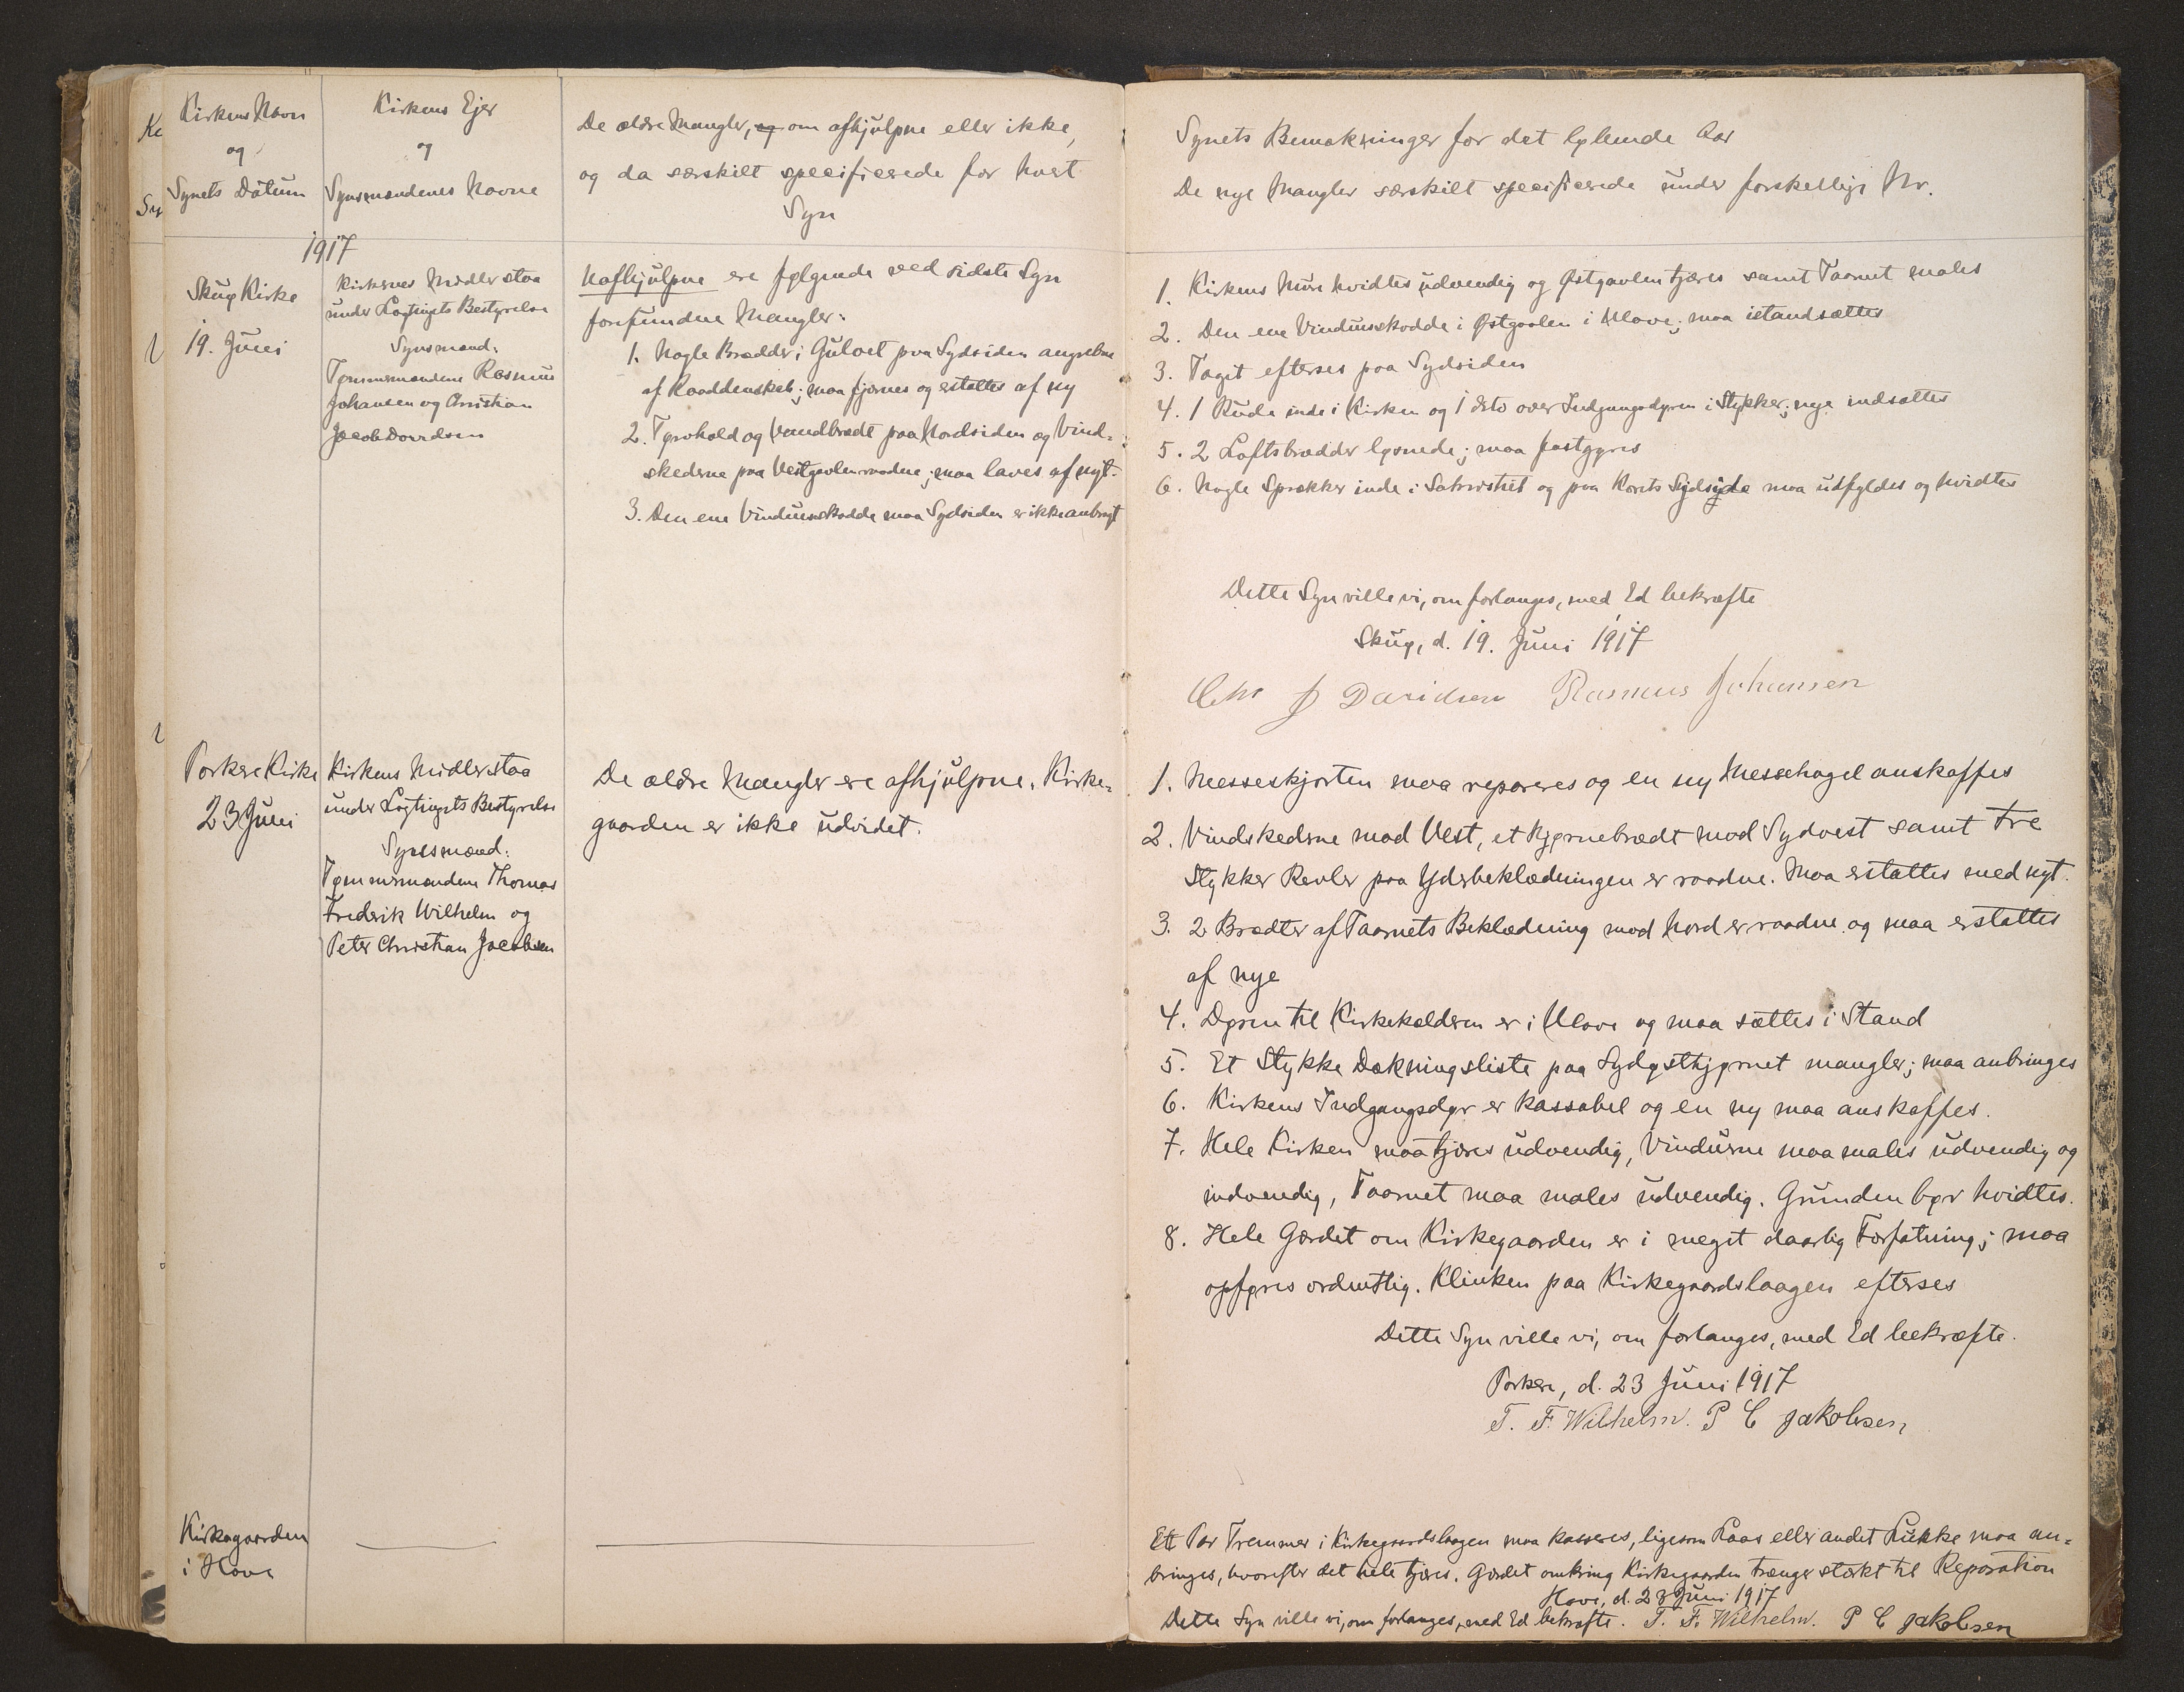 Kirkens Navn
og
Synets Datum
Kirkens Ejer
og
Synsmændenes Navne
De ældre Mangler, og om afhjulpne eller ikke,
og da særskilt specificerede for hvert
Syn
1917
Skuø Kirke
19. Juni
Kirkernes Midler staa
under Lagtingets Bestyrelse
Synsmænd:
Tømmermændene Rasmus
Johansen og Christian
Jacob Davidsen
Uafhjulpne ere følgende ved sidste Syn
forefundne Mangler:
1. Nogle Brædder i Gulvet paa Sydsiden angrebne
af Raaddenskab; maa fjernes og erstattes af ny
2. Tørvhold og Vandbrædt paa Nordsiden og Vind-
skederne paa Vestgavlen raadne; maa laves af nyt.
3. Den ene Vinduesskodde maa Sydsiden er ikke anbragt
Porkere Kirke
23 Juni
Kirkens Midler staa
under Lagtingets Bestyrelse
Synsmænd:
Tømmermændene Thomas
Frederik Wilhelm og
Peter Christian Jacobsen
De ældre Mangler ere afhjulpne. Kirke-
gaarden er ikke udvidet.
Kirkegaarden
i Hove
Synets Bemærkninger for det løbende Aar
De nye Mangler særskilt specificerede under forskellige Nr.
1. Kirkens Mure hvidtes udvendig og Østgavlen tjæres samt Taarnet males
2. Den ene Vinduesskodde i Østgavlen i Ulave; maa istandsættes
3. Taget efterses paa Sydsiden
4. 1 Rude inde i Kirken og 1 dito over Indgangsdøren i Stykker; nye indsættes
5. 2 Loftsbrædder løsnede; maa fastgøres
6. Nogle Sprækker inde i Sakristiet og paa Korets Sydside maa udfyldes og hvidtes
Dette Syn ville vi, om forlanges, med Ed bekræfte
Skuø, d. 19. Juni 1917
Chr J Davidsen Rasmus Johansen
1. Messeskjorten maa repareres og en ny Messehagel anskaffes
2. Vindskederne mod Vest, et Hjørnebrædt mod Sydvest samt tre
Stykker Revler paa Yderbeklædningen er raadne. Maa erstattes med nyt.
3. 2 Brædter af Taarnets Beklædning mod Nord er raadne og maa erstattes
af nye
4. Døren til Kirkekælderen er i Ulave og maa sættes i Stand
5. Et Stykke Dækningsliste paa Sydøsthjørnet mangler; maa anbringes
6. Kirkens Indgangsdør er kassabel og en ny maa anskaffes.
7. Hele Kirken maa tjæres udvendig, Vinduerne maa males udvendig og
indvendig, Taarnet maa males udvendig. Grunden bør hvidtes.
8. Hele Gærdet om Kirkegaarden er i meget daarlig Forfatning; maa
opføres ordentlig. Klinken paa Kirkegaardslaagen efterses
Dette Syn ville vi, om forlanges, med Ed bekræfte.
Porkere, d. 23 Juni 1917
T. F. Wilhelm. P C Jakobsen
Ett Par Tremmer i Kirkegaardslaagen maa kasseres, ligesom Laas eller andet Lukke maa an-
bringes, hvorefter det hele tjæres. Gærdet omkring Kirkegaarden trænger stærkt til Reparation
Hove, d. 23 Juni 1917
Dette Syn ville vi, om forlanges, med Ed bekræfte. T. F. Wilhelm. P C Jakobsen